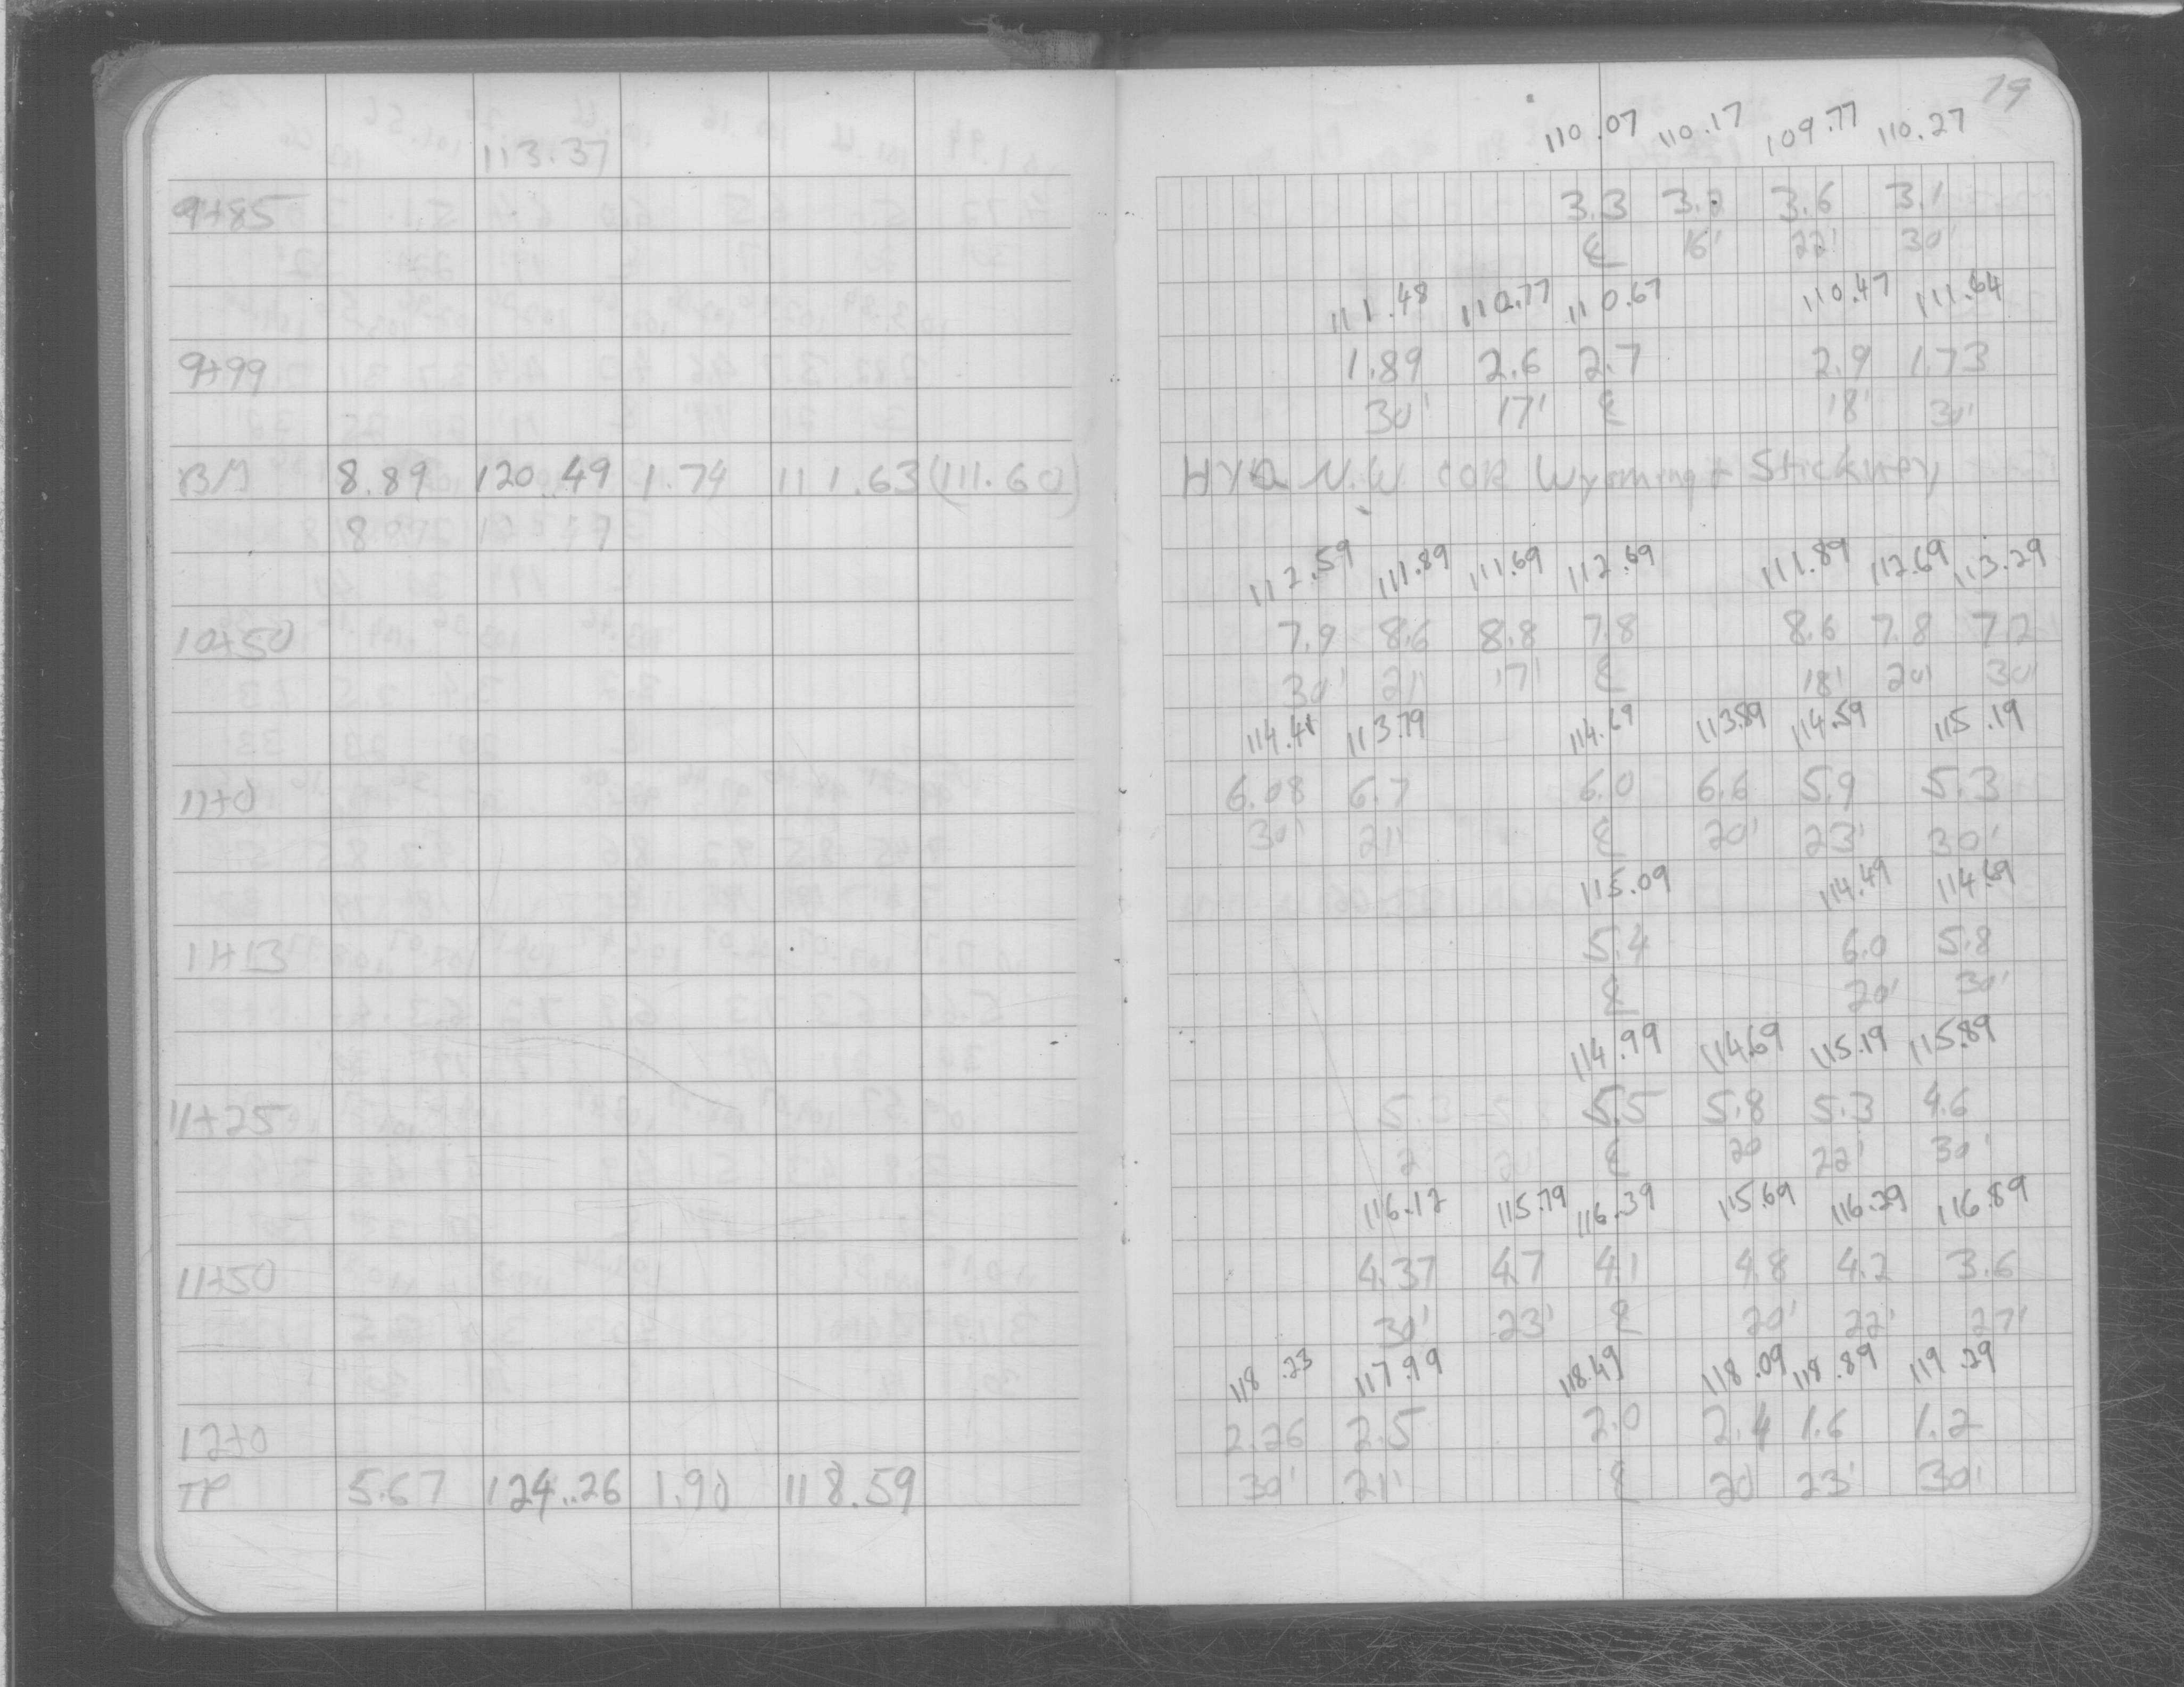 79
110.07 110.17 109.77 110.27
113.37
9+85 3.3 3.2 3.6 3.1
℄ 16' 22' 30'
111.48 110.77 110.67 110.47 111.64
9+99 1.89 2.6 2.7 2.9 1.73
30' 17' ℄ 18' 30'
BM 8.89 120.49 1.74 111.63 (111.60) HYD N.W. COR Wyoming + Stickney
112.59 111.89 111.69 112.69 111.89 112.69 113.29
10+50 7.9 8.6 8.8 7.8 8.6 7.8 7.2
30' 21' 17' ℄ 18' 20' 30'
114.41 113.79 114.49 113.89 114.59 115.19
11+0 6.08 6.7 6.0 6.6 5.9 5.3
30' 21' ℄ 20' 23' 30'
115.09 114.49 114.69
11+13 5.4 6.0 5.8
℄ 20' 30'
114.99 114.69 115.19 115.89
11+25 5.5 5.8 5.3 4.6
℄ 20 22' 30'
116.12 115.79 116.39 115.69 116.29 116.89
11+50 4.37 4.7 4.1 4.8 4.2 3.6
30' 23' ℄ 20' 22' 27'
118.23 117.99 118.49 118.09 118.89 119.29
12+0 2.26 2.5 2.0 2.4 1.6 1.2
TP 5.67 124.26 1.90 118.59 30' 21' ℄ 20 23' 30'